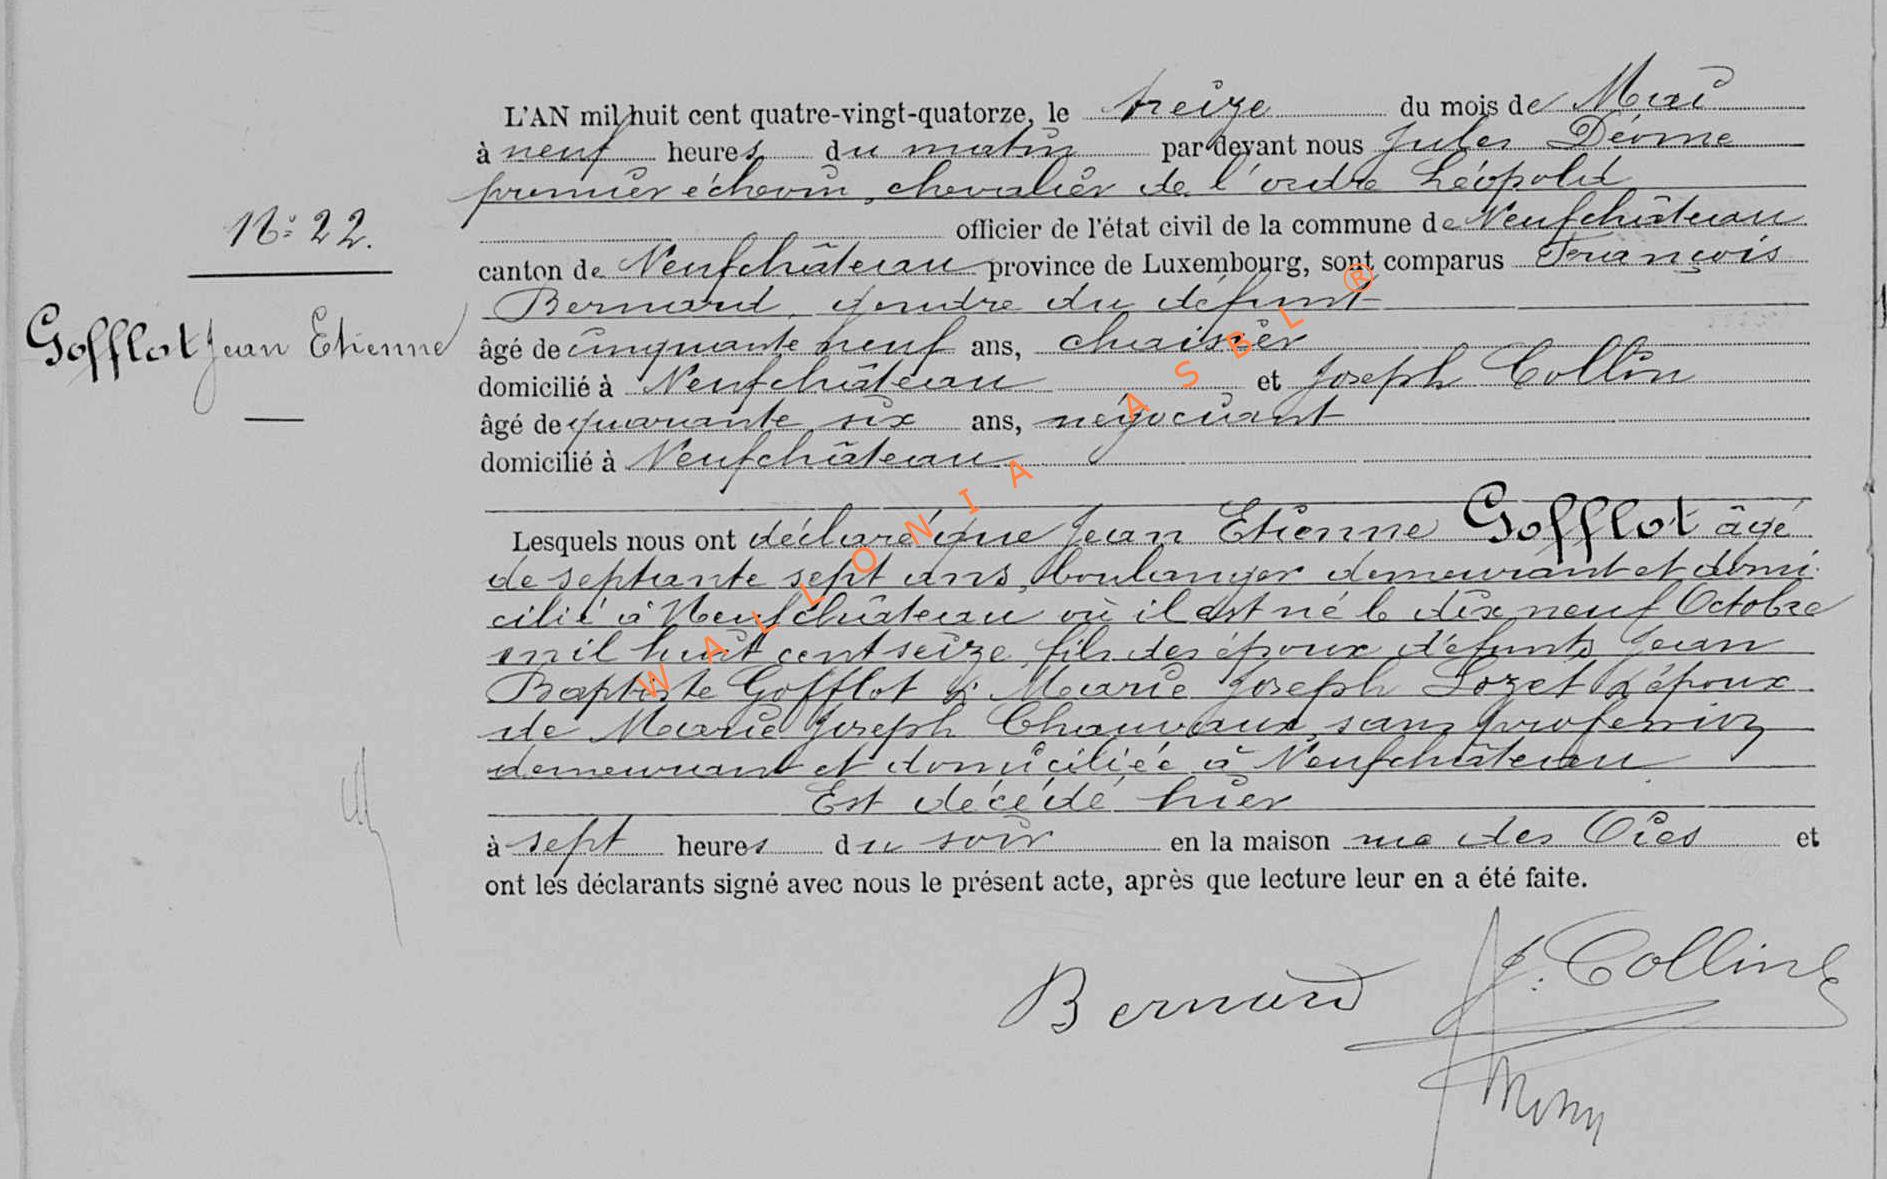 L'AN mil huit cent quatre-vingt-quatorze, le treize du mois de Mai
à neuf heures du matin par devant nous Jules
premier échevin, chevalier de l'ordre Léopold
N° 22.
officier de l'état civil de la commune de Neufchâteau
canton de Neufchâteau province de Luxembourg, sont comparus François
Bernard, gendre du défunt
Gofflot Jean Etienne
âgé de cinquante neuf ans, chaisier
domicilié à Neufchâteau et Joseph Collin
âgé de quarante six ans, négociant
domicilié à Neufchâteau
Lesquels nous ont déclaré que Jean Etienne Gofflot âgé
de septante sept ans, boulanger demeurant et domi-
cilié à Neufchâteau où il est né le dix neuf Octobre
mil huit cent seize, fils des époux défunts Jean
Baptiste Gofflot & Marie Joseph Lozet, époux
de Marie Joseph Chauvaux, sans profession
demeurant et domiciliée à Neufchâteau
Est décédé hier
à sept heures du soir en la maison rue des Oies et
ont les déclarants signé avec nous le présent acte, après que lecture leur en a été faite.
Bernard J. Collin
WALLONIA ASBL ®